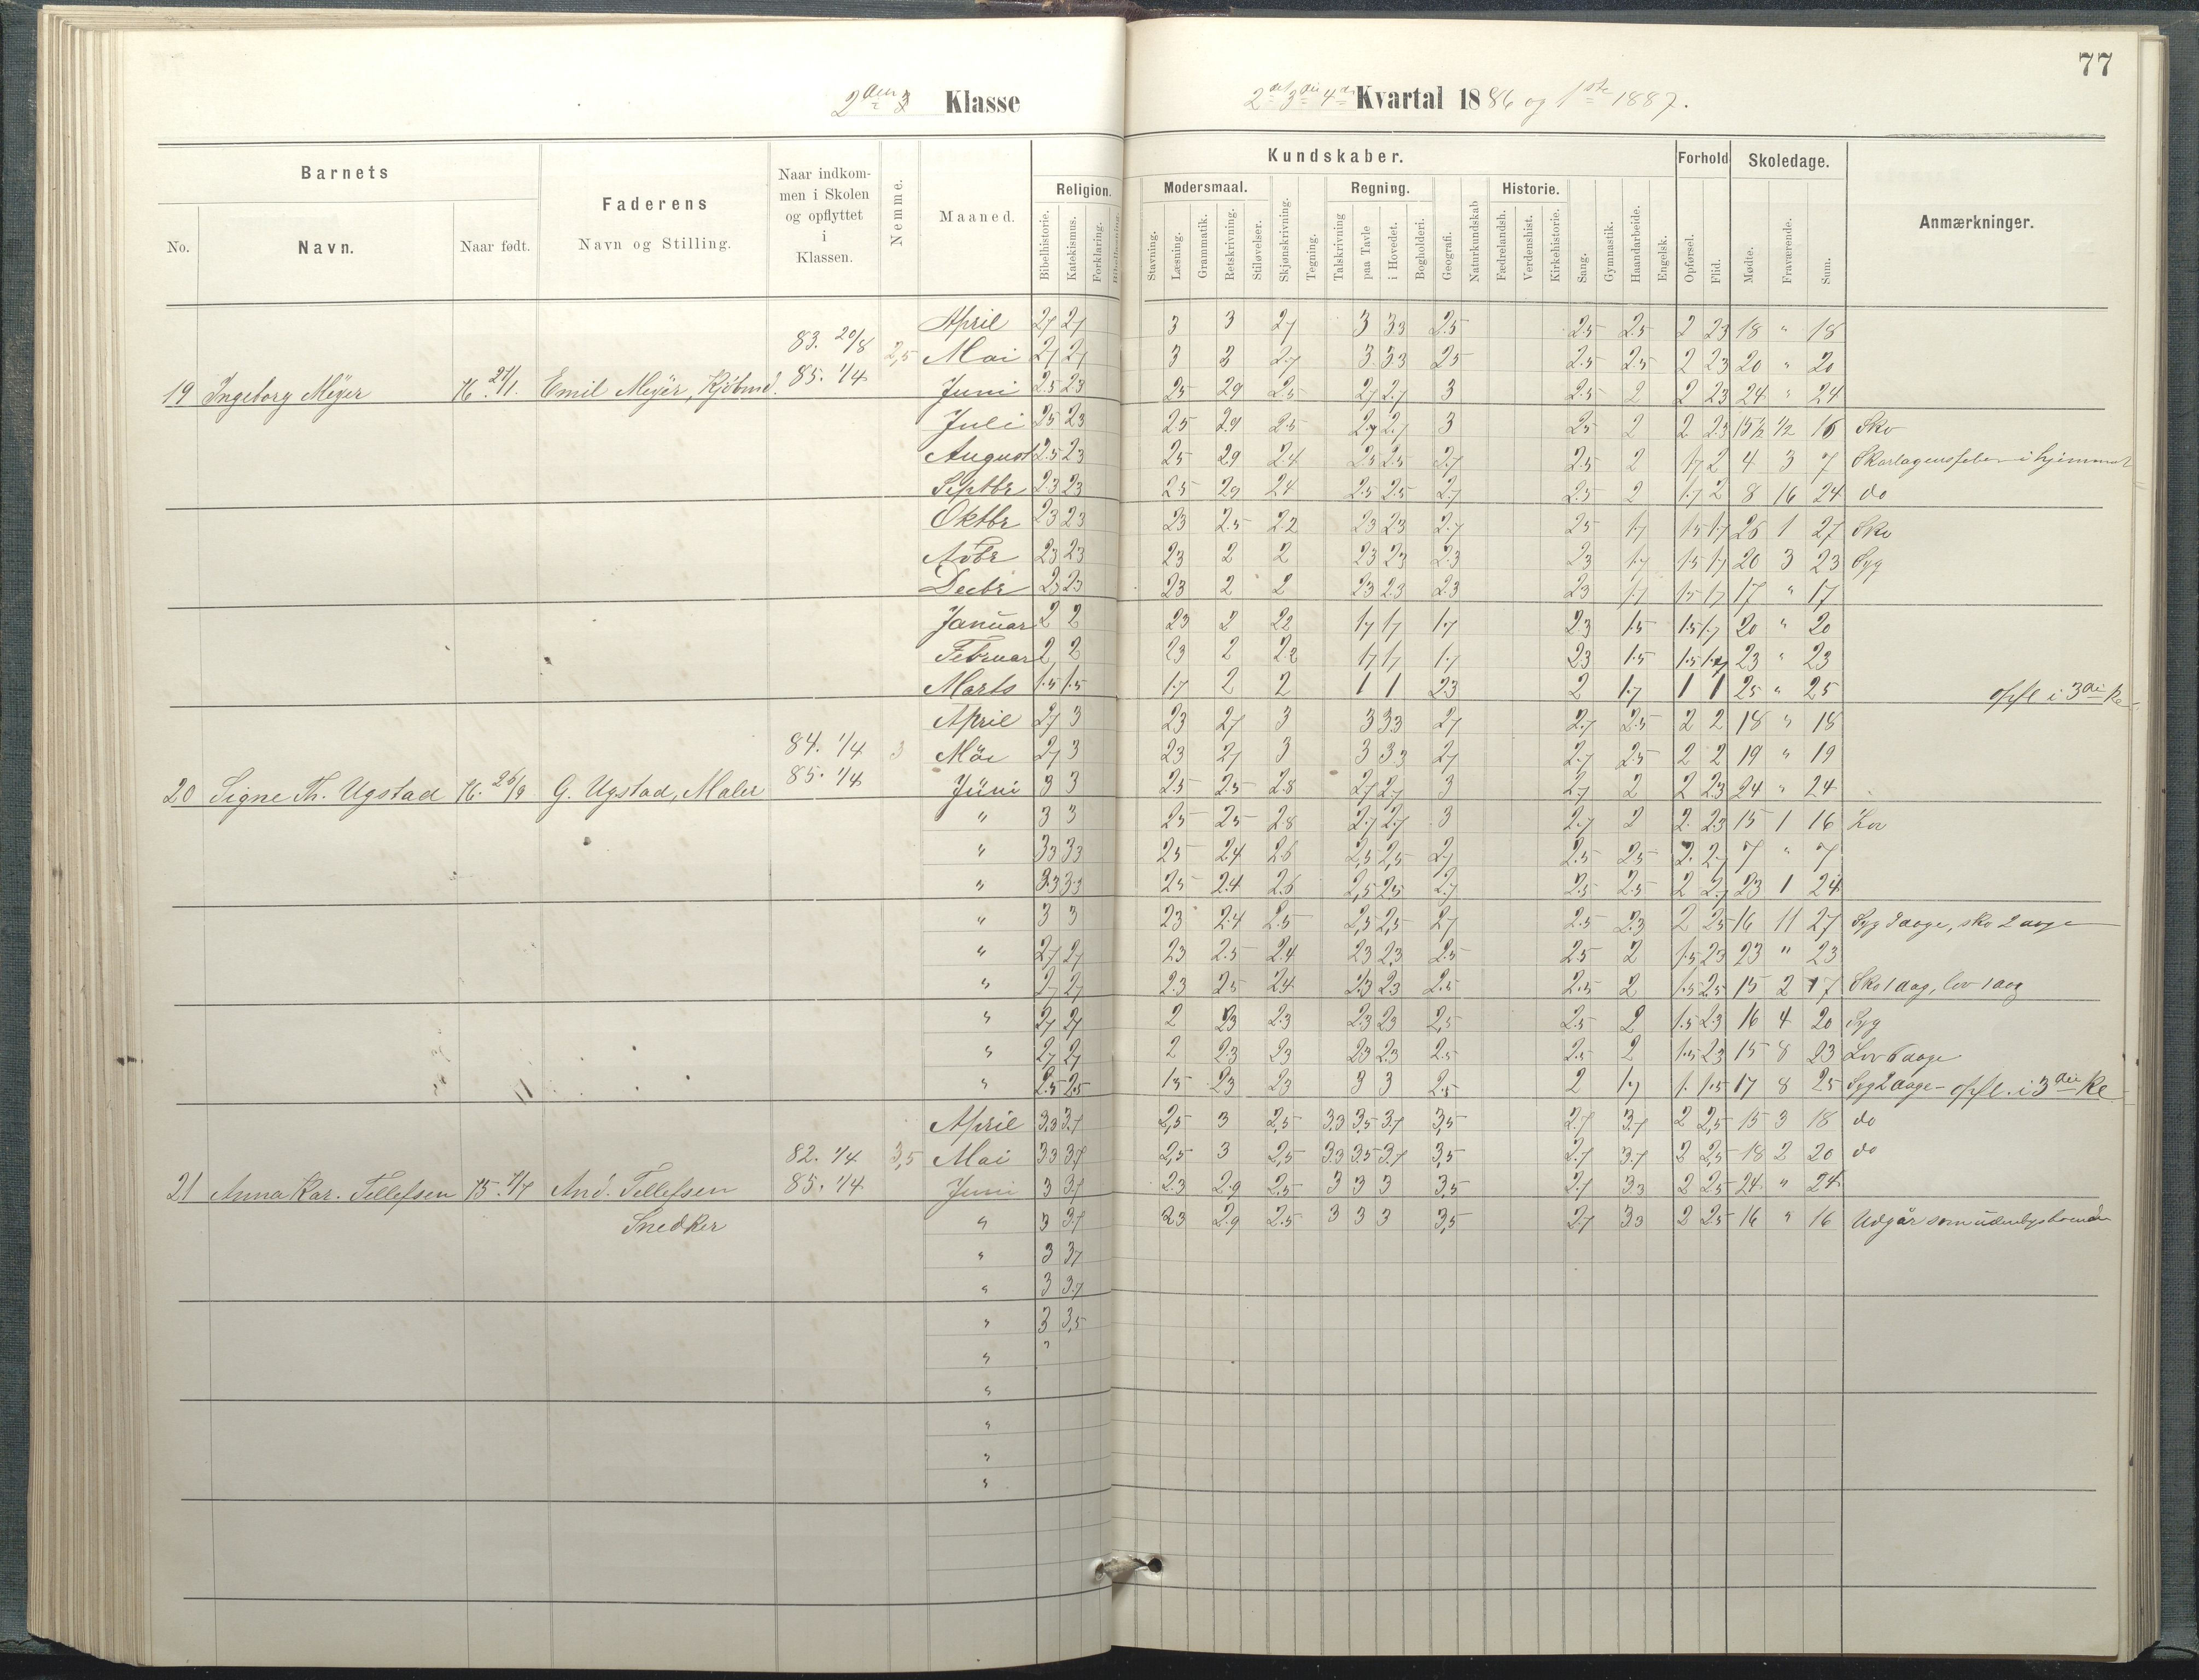 77
2den Klasse
2det 3die 4de Kvartal 1886 og 1ste 1887.
Barnets
Faderens
Naar indkom-
men i Skolen
og opflyttet
i
Klassen.
Nemme.
Maaned.
Kundskaber.
Forhold
Skoledage.
Anmærkninger.
No.
Navn.
Naar født.
Navn og Stilling.
Religion.
Modersmaal.
Regning.
Historie.
Bibelhistorie.
Katekismus.
Forklaring.
Bibellæsning.
Stavning.
Læsning.
Grammatik.
Retskrivning.
Stiløvelser.
Skjønskrivning.
Tegning.
Talskrivning
paa Tavle
i Hovedet.
Bogholderi.
Geografi.
Naturkundskab
Fædrelandsh.
Verdenshist.
Kirkehistorie.
Sang.
Gymnastik.
Haandarbeide.
Engelsk.
Opførsel.
Flid.
Mødte.
Fraværende.
Sum.
April 2,7 2,7 3 3 2,7 3 3.3 2.5 2.5 2.5 2 2.3 18 " 18
83. 20/8 2,5 Mai 2,7 2,7 3 3 2.7 3 3.3 2.5 2.5 2.5 2 2.3 20 " 20
19 Ingeborg Meÿer 76. 27/1. Emil Meÿer, Kjøbmd. 85. 1/4 Juni 2.5 2.3 2.5 2.9 2.5 2.7 2.7 3 2.5 2 2 2.3 24 " 24
Juli 2.5 2.3 2.5 2.9 2.5 2.7 2.7 3 2.5 2 2 2.3 15 1/2 1/2 16 Sko
August 2.5 2.3 2.5 2.9 2.4 2.5 2.5 2.7 2.5 2 1.7 2 4 3 7 Skarlagensfeber i hjemmet
Septbr 2.3 2.3 2.5 2.9 2.4 2.5 2.5 2.7 2.5 2 1.7 2 8 16 24 do
Oktbr 2.3 2.3 2.3 2.5 2.2 2.3 2.3 2.7 2.5 1.7 1.5 1.7 26 1 27 Sko
Novbr 2.3 2.3 2.3 2 2 2.3 2.3 2.3 2.3 1.7 1.5 1.7 20 3 23 Syg
Decbr 2.3 2.3 2.3 2 2 2.3 2.3 2.3 2.3 1.7 1.5 1.7 17 " 17
Januar 2 2 2.3 2 2.2 1.7 1.7 1.7 2.3 1.5 1.5 1.7 20 " 20
Februar 2 2 2.3 2 2.2 1.7 1.7 1.7 2.3 1.5 1.5 1.7 23 " 23
Marts 1.5 1.5 1.7 2 2 1 1 2.3 2 1.7 1 1 25 " 25 opfl i 3die Kl.
April 2,7 3 2.3 2.7 3 3 3.3 2.7 2.7 2.5 2 2 18 " 18
84. 1/4 3 Mai 2,7 3 2.3 2.7 3 3 3.3 2.7 2.7 2.5 2 2 19 " 19
20 Signe Th. Ugstad 76. 26/9 G. Ugstad, Maler 85. 1/4 Juni 3 3 2.5 2.5 2.8 2.7 2.7 3 2.7 2 2 2.3 24 " 24
" 3 3 2.5 2.5 2.8 2.7 2.7 3 2.7 2 2 2.3 15 1 16 Lov
" 3.3 3.3 2.5 2.4 2.6 2,5 2,5 2.7 2.5 2.5 2 2.7 7 " 7
" 3.3 3.3 2.5 2.4 2.6 2,5 2.5 2.7 2.5 2.5 2 2.7 23 1 24
" 3 3 2.3 2.4 2.5 2,5 2,5 2.7 2.5 2.3 2 2.5 16 11 27 Syg 9 dage, sko 2 dage
" 2.7 2.7 2.3 2.5 2.4 2.3 2.3 2.5 2.5 2 1.5 2.3 23 " 23
" 2.7 2.7 2.3 2.5 2.4 2.3 2.3 2.5 2.5 2 1.5 2.5 15 2 17 Sko 1 dag, lov 1 dag
" 2.7 2.7 2 2.3 2.3 2.3 2.3 2,5 2.5 2 1.5 2.3 16 4 20 Syg
" 2.7 2.7 2 2.3 2.3 2.3 2.3 2.5 2.5 2 1.5 2.3 15 8 23 Lov 6 dage
" 2.5 2.5 1.5 2.3 2.3 3 3 2.5 2 1.7 1. 1.5 17 8 25 Syg 2 dage - opfl. i 3die Kl
April 3.3 3.7 2,5 3 2,5 3.3 3.5 3.7 3,5 2.7 3.7 2 2,5 15 3 18 do
82. 1/4 3,5 Mai 3.3 3.7 2,5 3 2,5 3.3 3.5 3.7 3,5 2.7 3.7 2 2,5 18 2 20 do
21 Anna Kar. Tellefsen 75. 1/7 And. Tellefsen 85. 1/4 Juni 3 3.7 2.3 2.9 2.5 3 3 3 3,5 2.7 3.3 2 2.5 24 " 24
Snedker " 3 3.7 2.3 2.9 2.5 3 3 3 3,5 2.7 3.3 2 2.5 16 " 16 Udgår som udenbysboende
" 3 3.7
" 3 3.7
" 3 3,5
" "
"
"
"
"